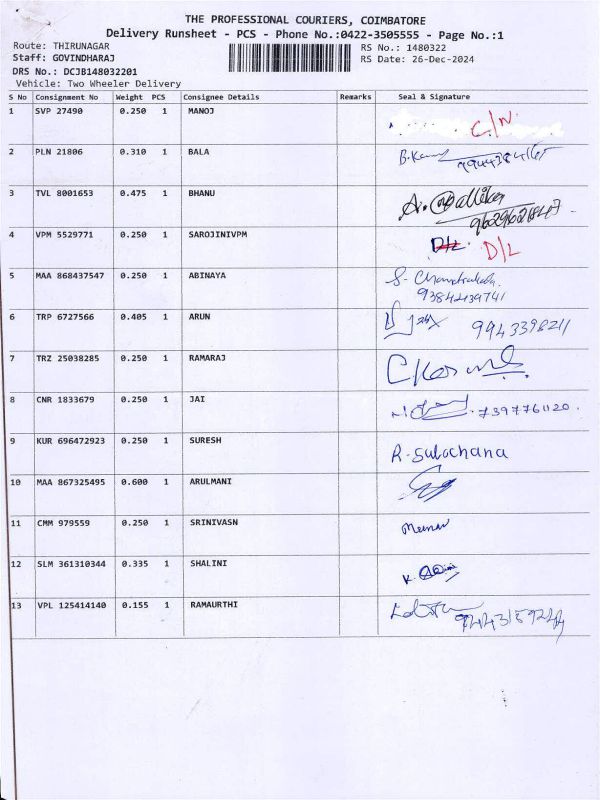 THE PROFESSIONAL COURIERS, COIMBATORE
Delivery Runsheet - PCS - Phone No.:0422-3505555 - Page No.:1
Route: THIRUNAGAR RS No.: 1480322
Staff: GOVINDHARAJ RS Date: 26-Dec-2024
DRS No.: DCJB148032201
Vehicle: Two Wheeler Delivery
S No Consignment No Weight PCS Consignee Details Remarks Seal & Signature
1 SVP 27490 0.250 1 MANOJ C/N
2 PLN 21806 0.310 1 BALA
3 TVL 8001653 0.475 1 BHANU
4 VPM 5529771 0.250 1 SAROJINIVPM D/L D/L
5 MAA 868437547 0.250 1 ABINAYA
9384239741
6 TRP 6727566 0.405 1 ARUN 9943396211
7 TRZ 25038285 0.250 1 RAMARAJ
8 CNR 1833679 0.250 1 JAI 7397761120.
9 KUR 696472923 0.250 1 SURESH R. Sulochana
10 MAA 867325495 0.600 1 ARULMANI
11 CMM 979559 0.250 1 SRINIVASN
12 SLM 361310344 0.335 1 SHALINI
13 VPL 125414140 0.155 1 RAMAURTHI